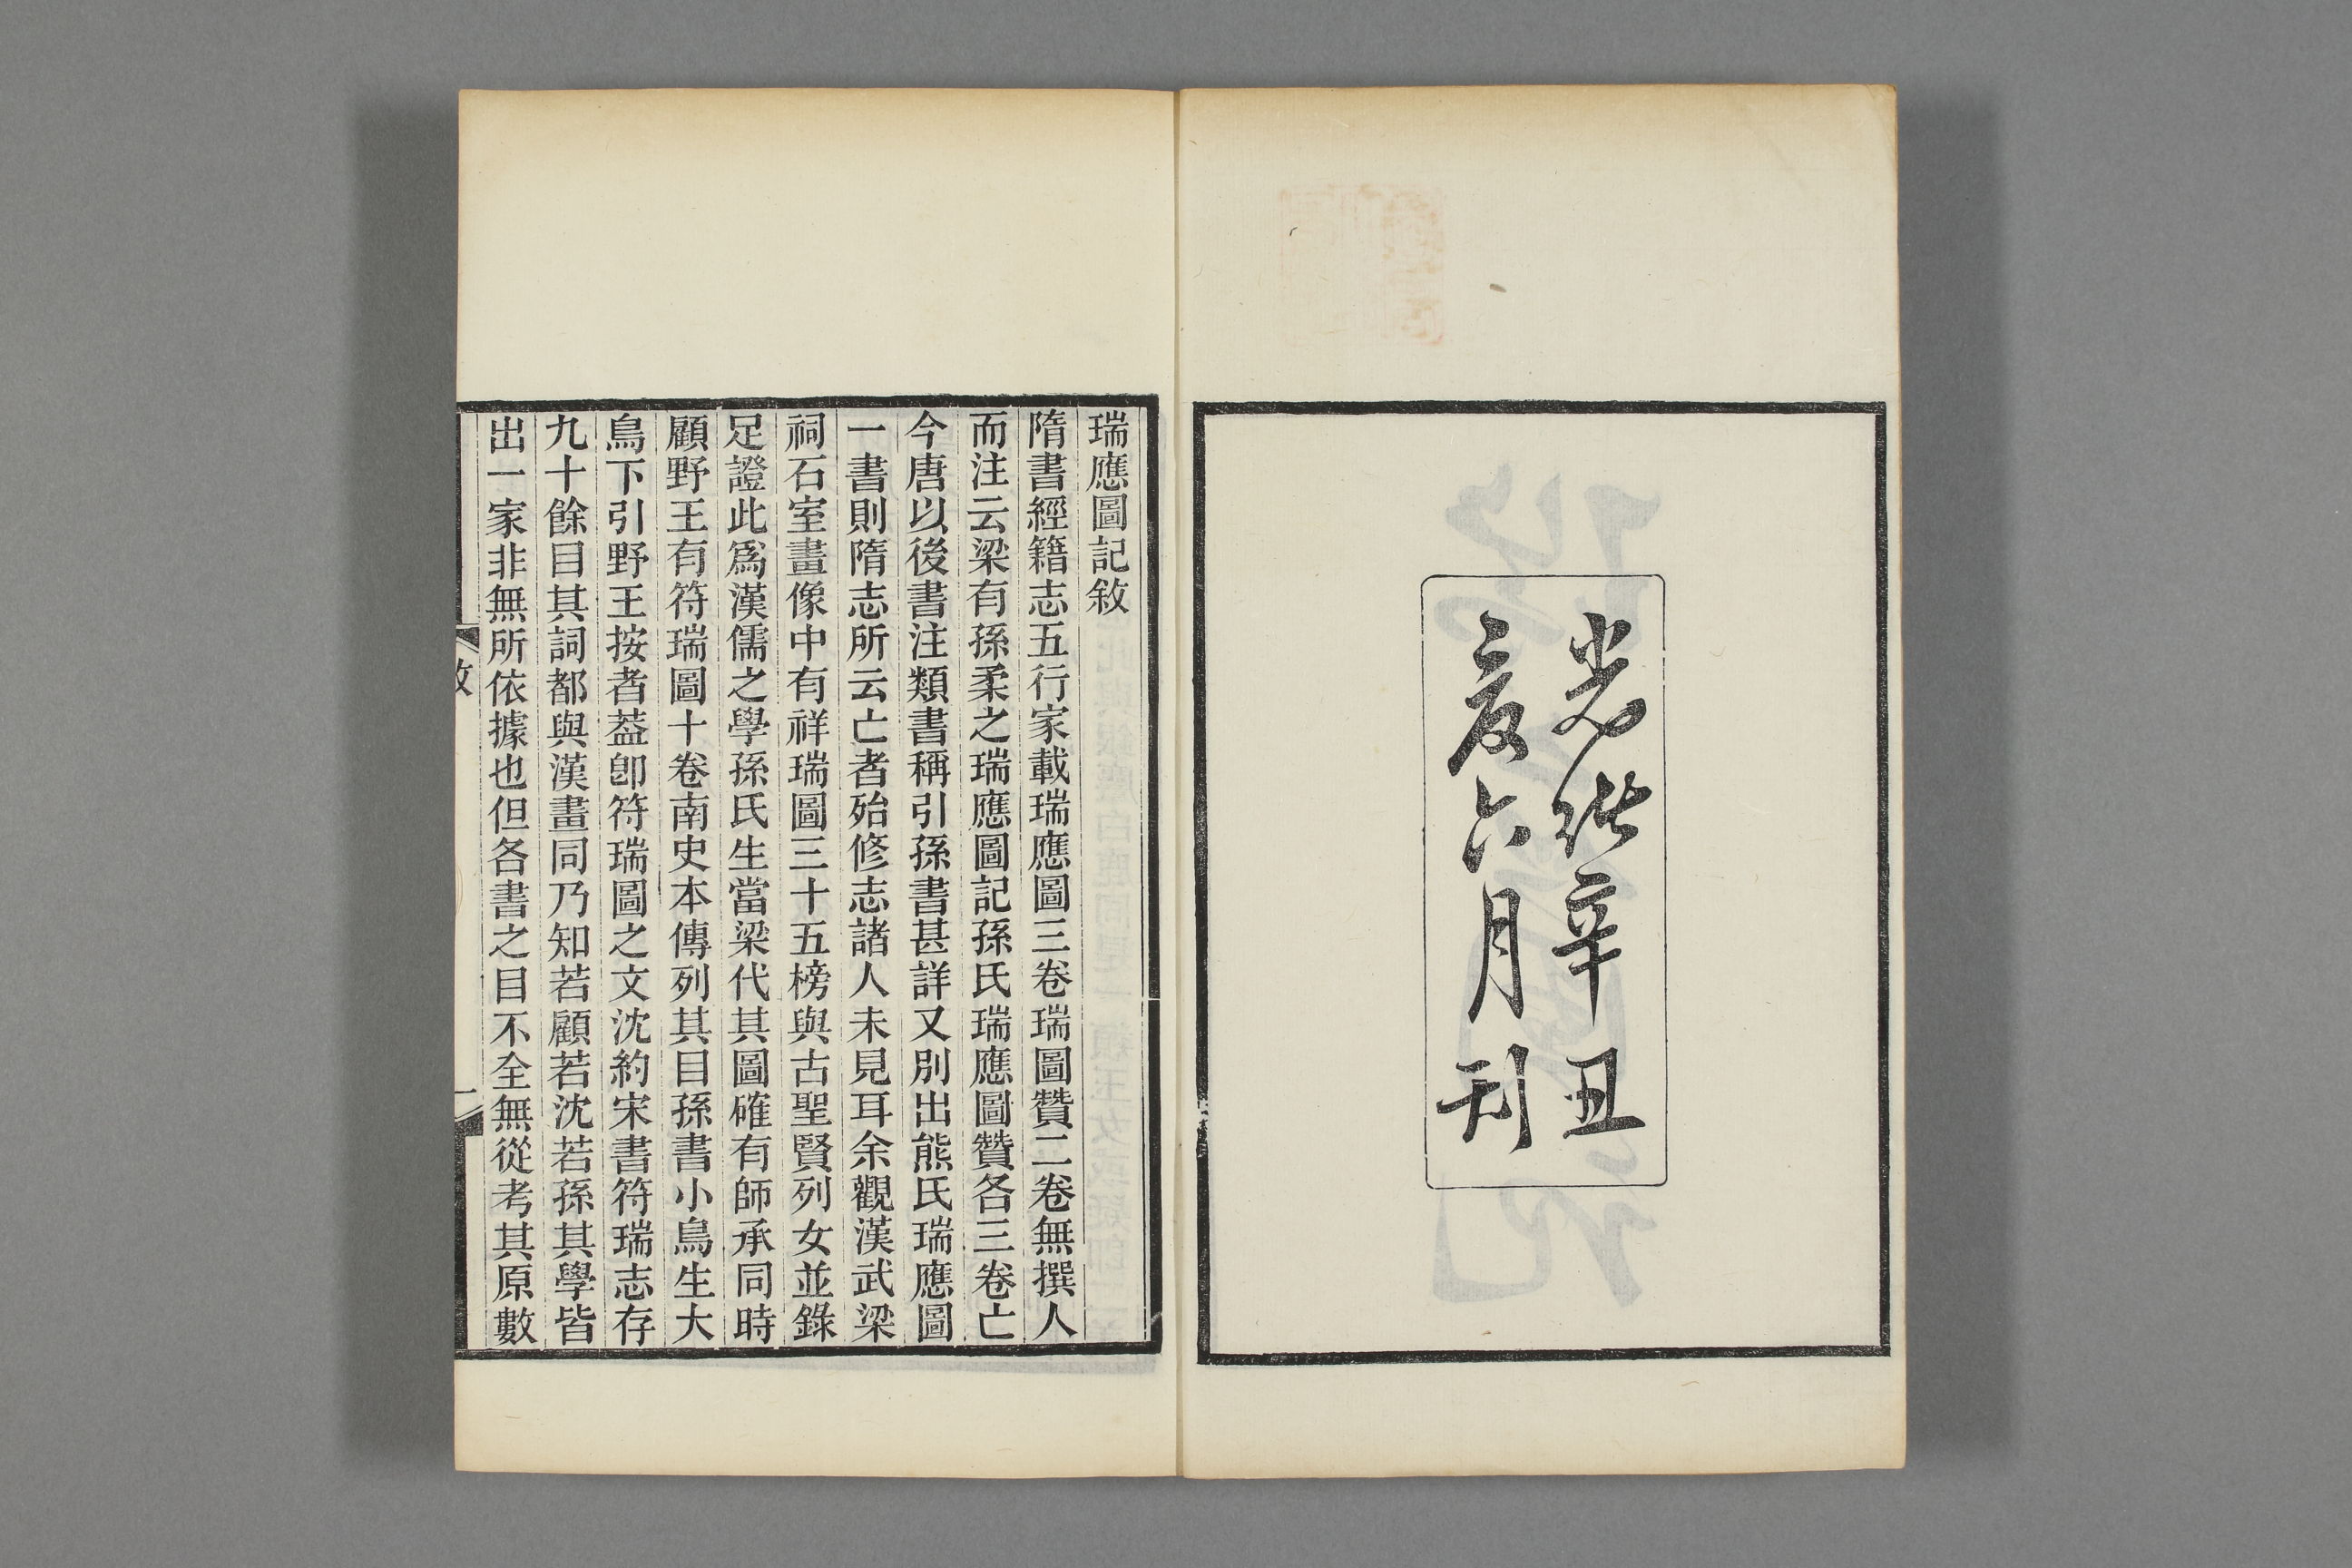 光緒辛丑
夏六月刊
瑞應圖記敘
隋書經籍志五行家載瑞應圖三卷瑞圖贊二卷無撰人
而注云梁有孫柔之瑞應圖記孫氏瑞應圖贊各三卷亡
今唐以後書注類書稱引孫書甚詳又別出熊氏瑞應圖
一書則隋志所云亡者殆修志諸人未見耳余觀漢武梁
祠石室畫像中有祥瑞圖三十五榜與古聖賢列女並錄
足證此爲漢儒之學孫氏生當梁代其圖確有師承同時
顧野王有符瑞圖十卷南史本傳列其目孫書小鳥生大
鳥下引野王按者葢卽符瑞圖之文沈約宋書符瑞志存
九十餘目其詞都與漢畫同乃知若顧若沈若孫其學皆
出一家非無所依據也但各書之目不全無從考其原數
敘
一